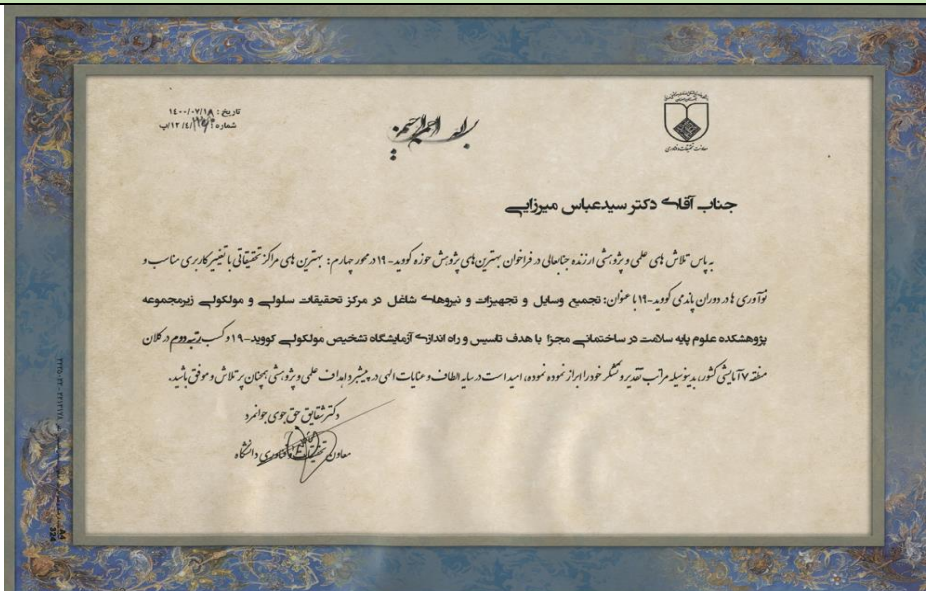 تاریخ : ۱۴۰۰/۰۷/۱۸
شماره : /۱۲/۴/پ
معاونت تحقیقات و فناوری
جناب آقای دکتر سیدعباس میرزایی
به پاس تلاش های علمی و پژوهشی ارزنده جنابعالی در فراخوان بهترین های پژوهش حوزه کووید-۱۹ در محور چهارم: بهترین های مراکز تحقیقاتی با تغییر کاربری مناسب و
نوآوری ها در دوران پاندمی کووید-۱۹ با عنوان: تجمیع وسایل و تجهیزات و نیروهای شاغل در مرکز تحقیقات سلولی و مولکولی زیرمجموعه
پژوهشکده علوم پایه سلامت در ساختمانی مجزا با هدف تاسیس و راه اندازی آزمایشگاه تشخیص مولکولی کووید-۱۹ و کسب رتبه دوم در کلان
منطقه ۷ آمایشی کشور، بدینوسیله مراتب تقدیر و تشکر خود را ابراز نموده نموده، امید است در سایه الطاف و عنایات الهی در پیشبرد اهداف علمی و پژوهشی همچنان پر تلاش و موفق باشید.
دکتر شقایق حق جوی جوانمرد
معاون تحقیقات و فناوری دانشگاه
A4